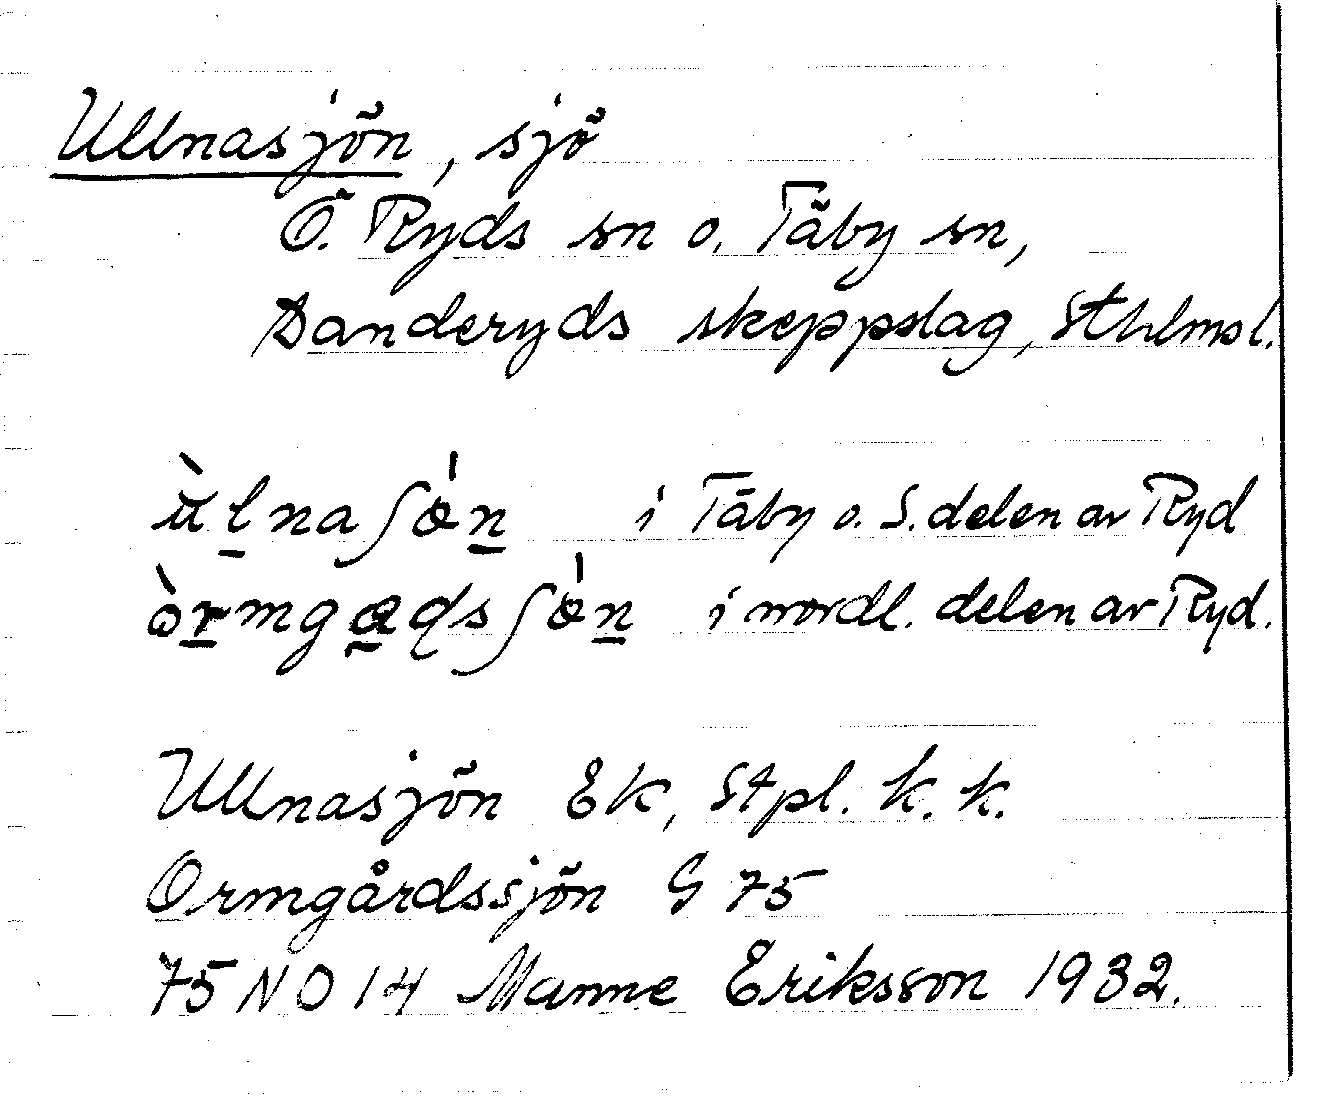 Ullnasjön, sjö
Ö. Ryds sn o. Täby sn,
Danderyds skeppslag, Sthlmsl.
i Täby o. S. delen av Ryd
i nordl. delen av Ryd.
Ullnasjön Ek, Stpl. k. k.
Ormgårdssjön G 75
75 NO 14 Manne Eriksson 1932.